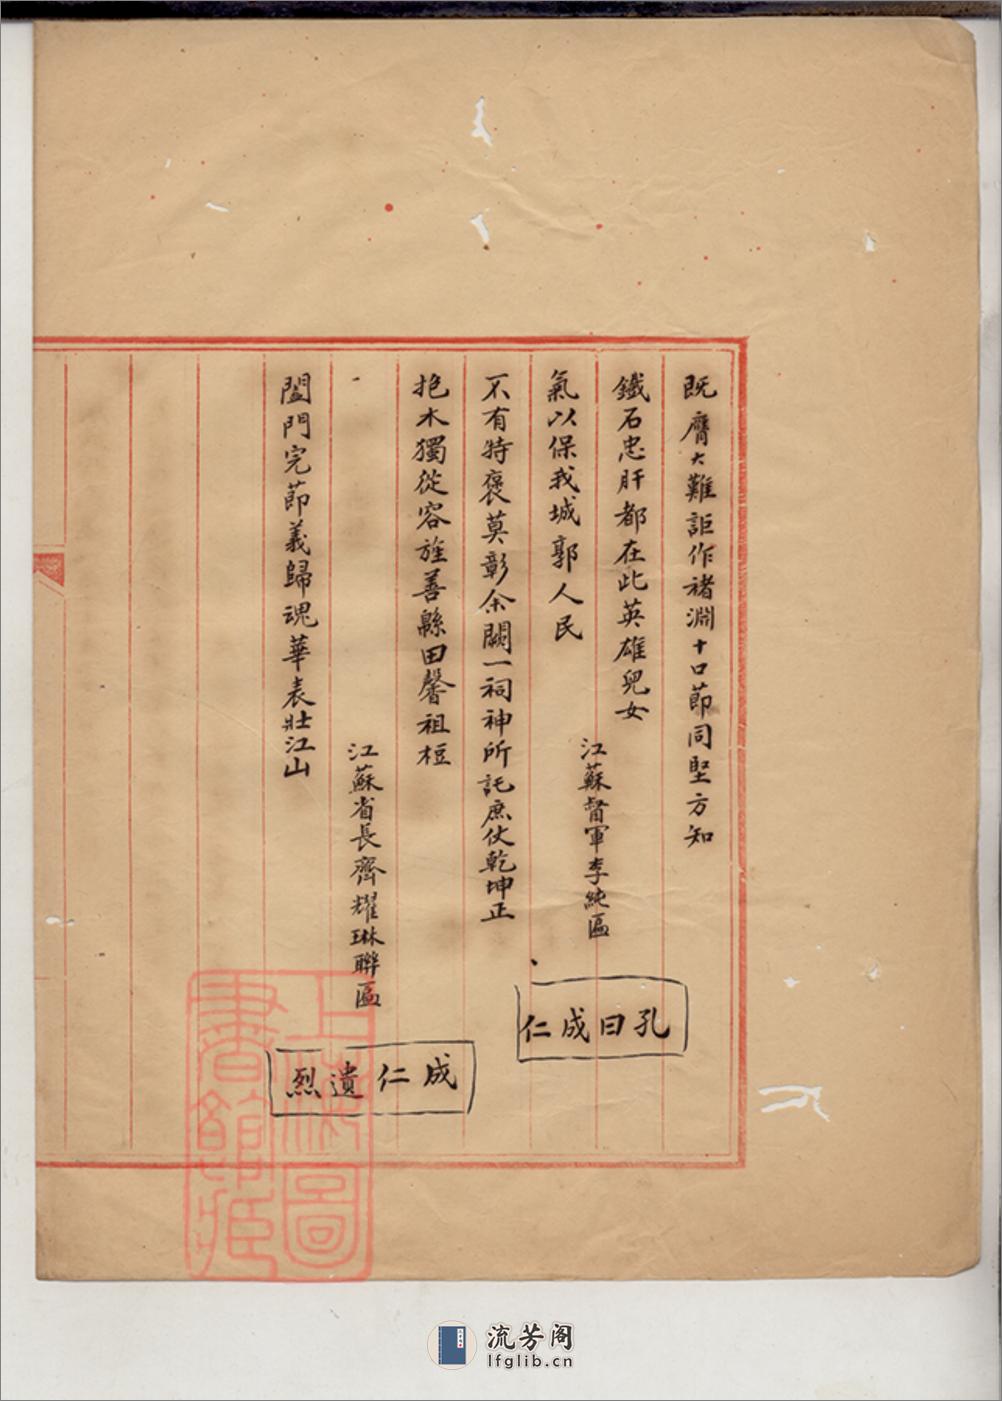 既膺大難詎作褚淵十口節同堅方知
鐵石忠肝都在此英雄兒女
氣以保我城郭人民
江蘇督軍李純匾
孔曰成仁
不有特褒莫彰余闕一祠神所託庶仗乾坤正
抱木獨從容旌善緜田馨祖桓
江蘇省長齊耀琳聯匾
成仁遺烈
闔門完節義歸魂華表壯江山
上海圖書館藏
流芳阁
lfglib.cn